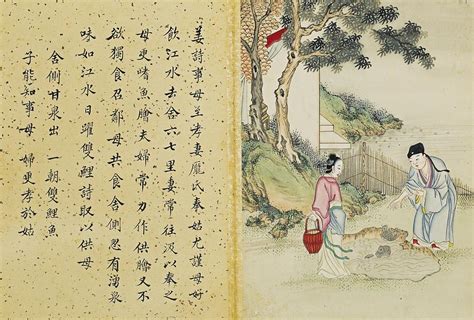 姜詩事母至孝妻龐氏奉姑尤謹母好
飲江水去舍六七里妻常往汲以奉之
母更嗜魚膾夫婦常力作供膾又不
欲獨食召鄰母共食舍側忽有湧泉
味如江水日躍雙鯉詩取以供母
舍側甘泉出 一朝雙鯉魚
子能知事母 婦更孝於姑